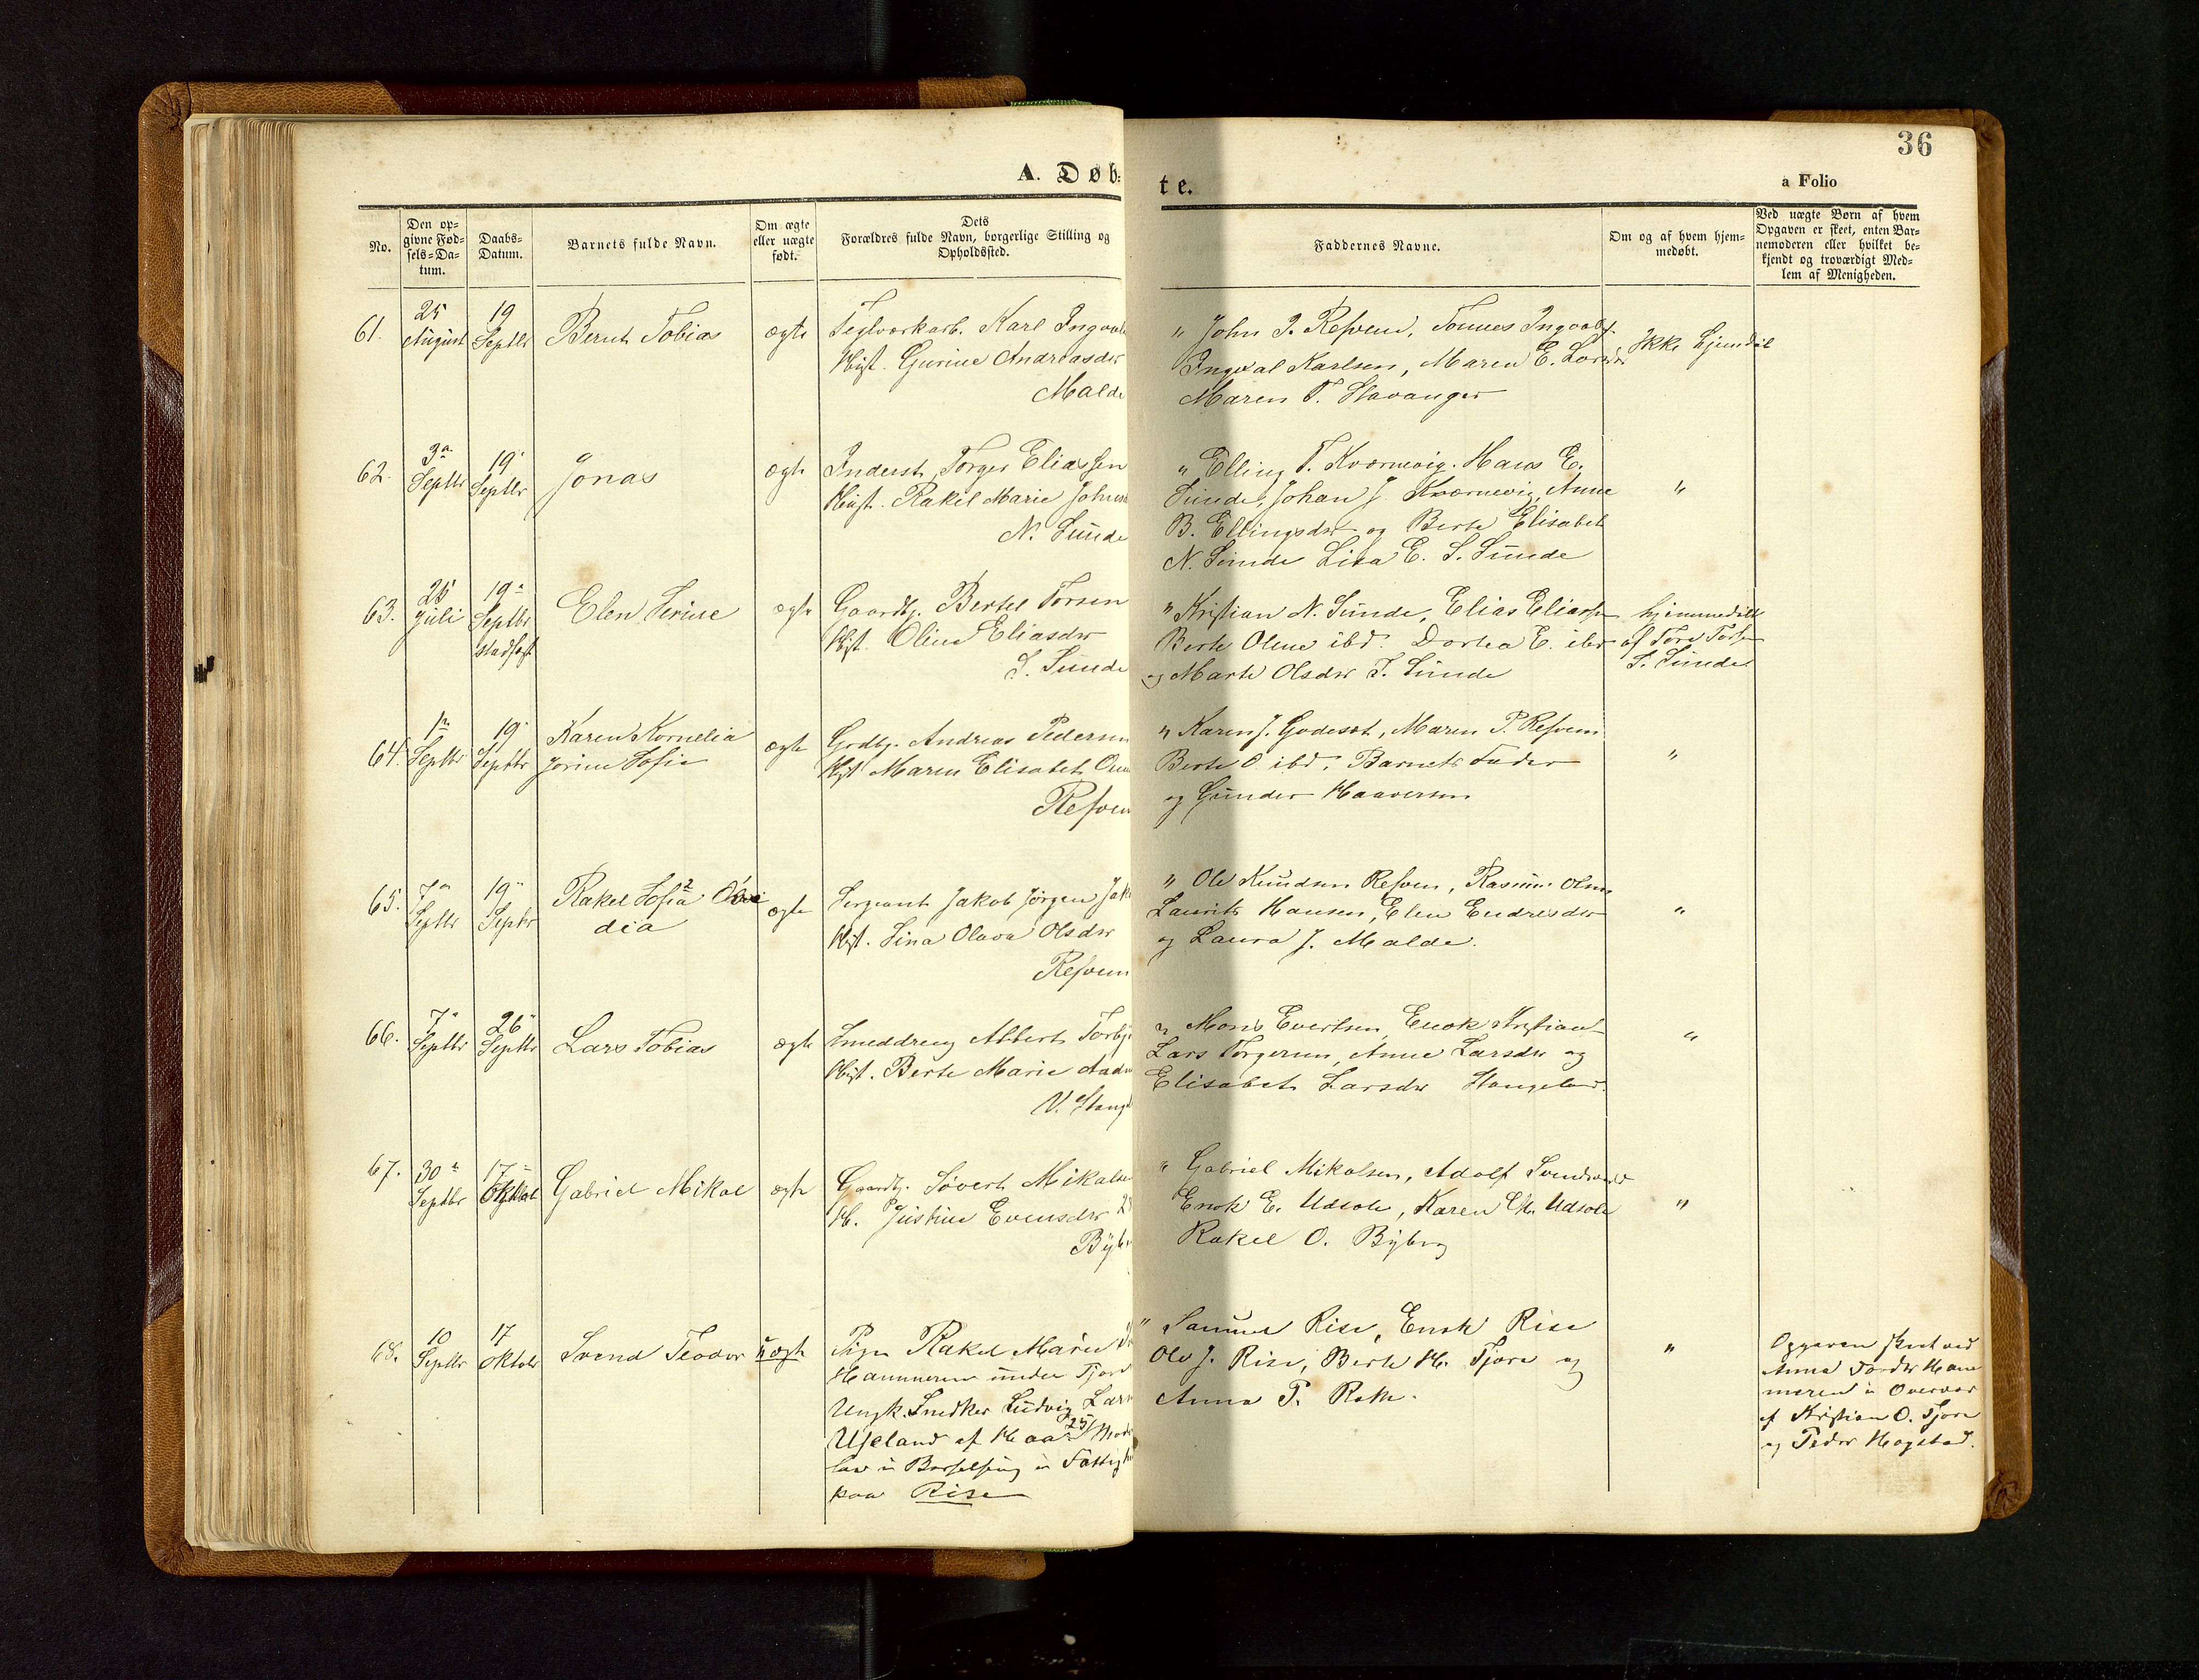 36
A. Døb=
te.
a Folio
No.
Den op=
givne Fød=
sels=Da=
tum.
Daabs=
Datum.
Barnets fulde Navn.
Om ægte
eller uægte
født.
Dets
Forældres fulde Navn, borgerlige Stilling og
Opholdssted.
Faddernes Navne.
Om og af hvem hjem=
medøbt.
Ved uægte Børn af hvem
Opgaven er skeet, enten Bar=
nemoderen eller hvilket be=
kjendt og troværdigt Med=
lem af Menigheden.
61.
25
August
19
Septbr
Bernt Tobias
ægte
Teglværkarb. Karl Ingvald
Hust. Gurine Andreasdr
Malde
" John J. Refven, Tonnes Ingvalds.
Ingval Karlsen, Maren E. Larsdr
Maren T. Stavanger
Ikke hjemdøbt
62.
3
Septbr
19
Septbr
Jonas
ægte
Inderst Torger Eliassen
Hust. Rakel Marie Johns
N. Sunde
" Elling T. Kvernevig. Hans E.
Sunde, Johan J. Kvernevig, Anne
B. Ellingsdr og Berte Elisabet
N. Sunde Lisa E. S. Sunde
"
63.
Juli
19
Septbr
stadfæst
Elen Serine
ægte
Gaardbr. Bertel Torsen
Hst. Oline Eliasdr
S. Sunde
" Kristian N. Sunde, Elias Eliassen
Berte Olene ibd. Dortea E. ibd
og Marte Olsdr S. Sunde
hjemmedøbt
af Tore Torsen
S. Sunde
64.
1
Septbr
19
Septbr
Karen Kornelia
Jorine Sofie
ægte
Grdbr. Andreas Pedersen
Hst Maren Elisabet
Refven
" Karen J. Godeset, Maren P. Refven
Berte O. ibd, Barnets Fader
og Gunder Haaversen
"
65.
7
Septbr
19
Septbr
Rakel Sofia
dia
ægte
Sergeant Jakob Jørgen Jak
Hst. Sina Olava Olsdr
Refven
" Ole Knudsen Refven, Rasmus Olsen
Laurits Hansen, Elen Endresdr
og Laura J. Malde.
"
66.
7
Septbr
26
Septbr
Lars Tobias
ægte
Smeddreng Albert Torbj
Hst. Berte Marie
V. Stang
" Mons Evertsen, Enok Kristians
Lars Torgersen, Anne Larsdr og
Elisabet Larsdr Stangeland.
"
67.
30
Septbr
17
Oktobr
Gabriel Mikal
ægte
Gaardbr. Sivert Mikalse
H. Justine Evensdr
Byb
" Gabriel Mikalsen, Adolf
Enok E. Udsola, Karen M. Udsola
Rakel O. Byberg
"
68.
10
Septbr
17
Oktobr
Svend Teodor
uægte
Pige Rakel Marie
Hammeren under Tjora
Ungk. Snedker Ludvig Lars
Ueland af Haa 25 Moder
laa i Barselseng i Fattigh
paa Rise
" Samuel Rise, Enok Rise
Ole J. Rise, Berte H. Tjora og
Anna P. Rott.
"
Opgaven skeet ved
Anna Tordr Ham
meren i Overvær
af Kristian O. Tjora
og Peder Hogstad.